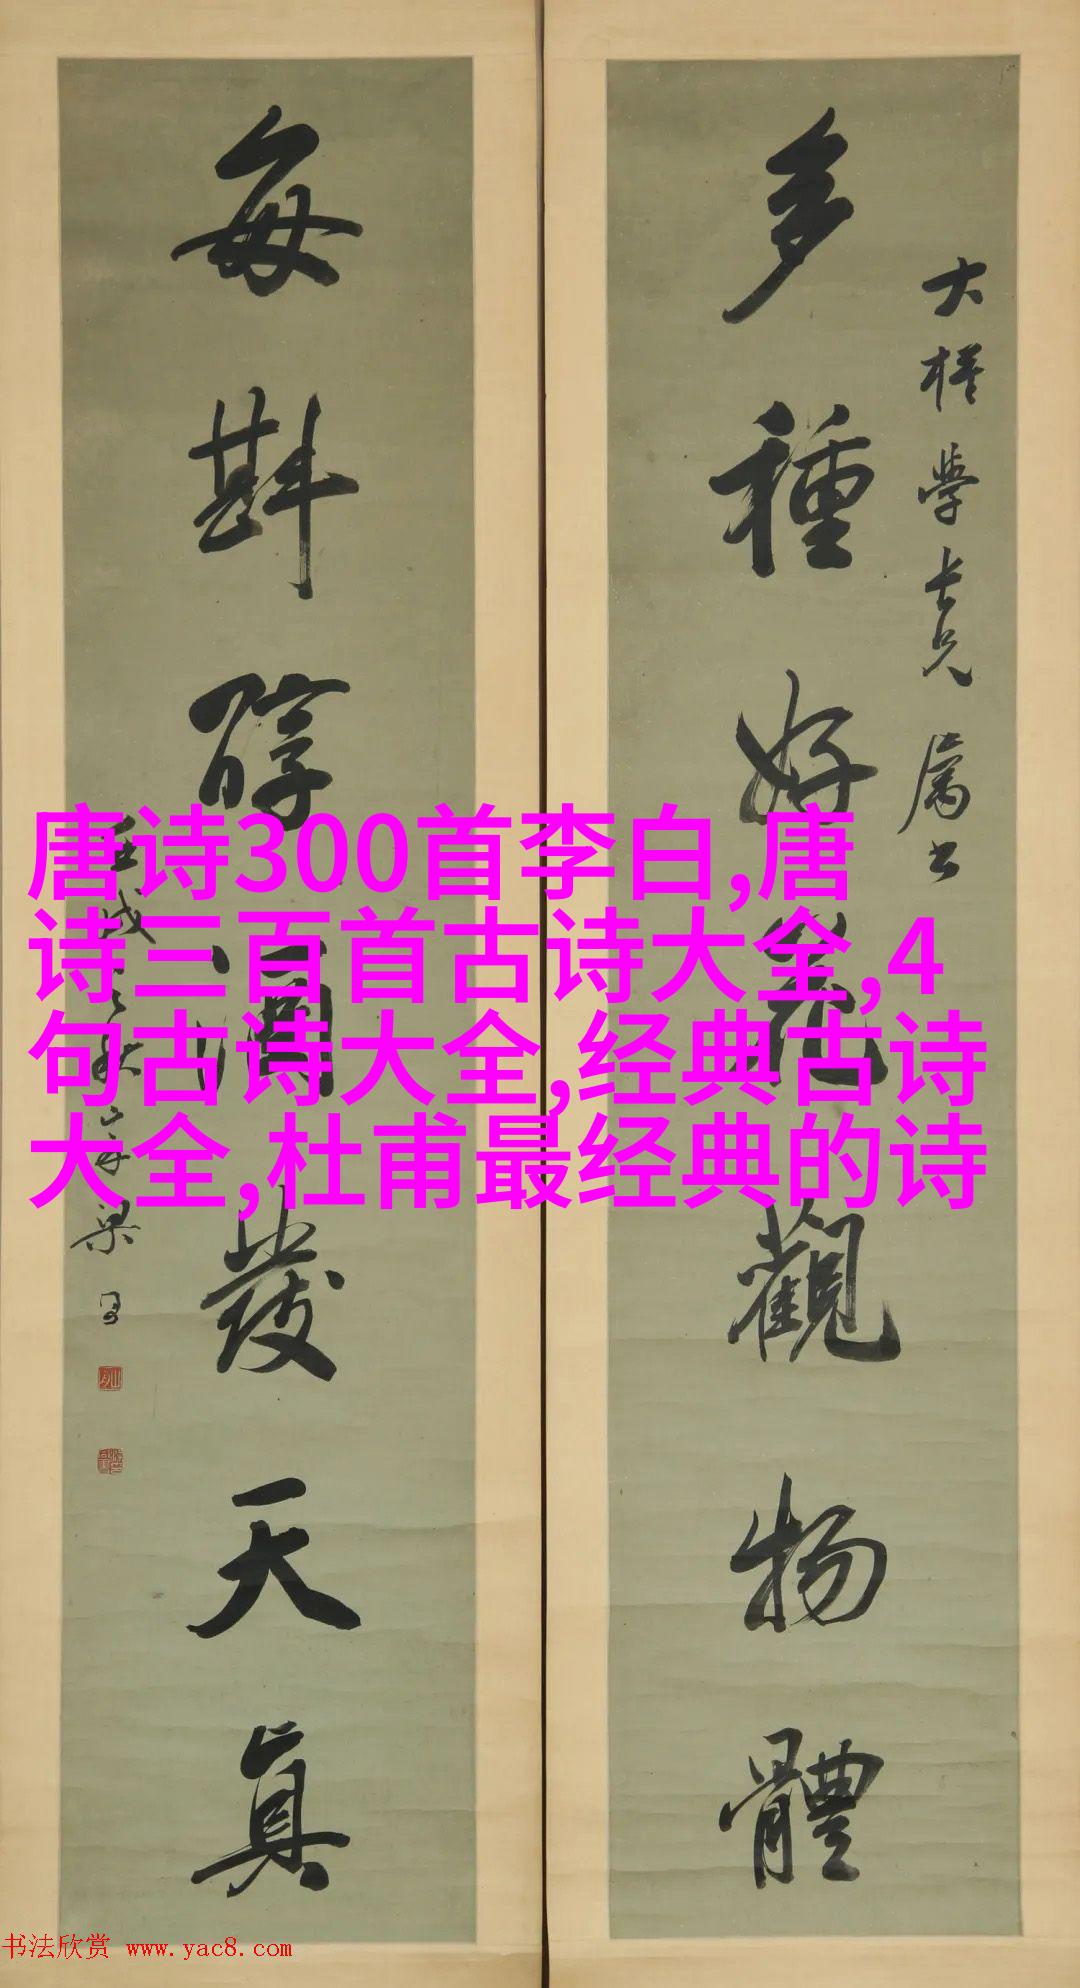 大樸學長兄屬書
多種好花觀物體
每斟醇酒發天真
壬戌之秋 梁同
唐诗300首李白,唐
诗三百首古诗大全,4
句古诗大全,经典古诗
大全,杜甫最经典的诗
书法欣赏 www.yac8.com